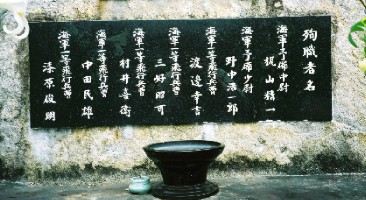 殉職者名
海軍予備中尉
梶山
一
海軍予備少尉
野中
一郎
海軍一等飛行兵曹
渡邉幸吉
海軍一等飛行兵曹
三好
海軍一等飛行兵曹
村井
海軍一等飛行兵曹
中田民雄
海軍二等飛行兵曹
明